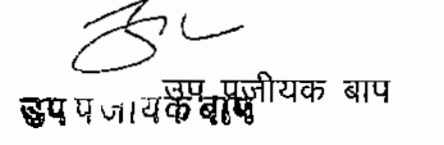 उप पजीयक बाप
उप पजायक बाप